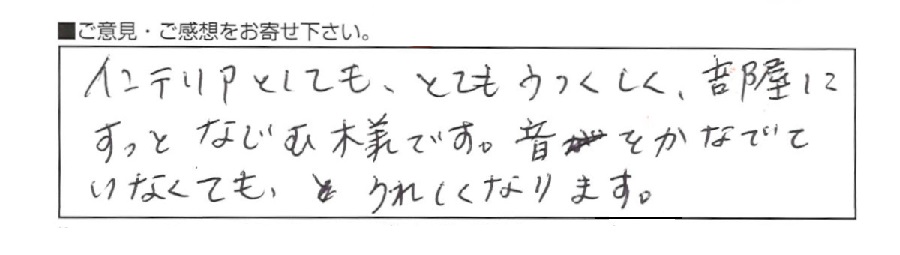 ■ご意見・ご感想をお寄せ下さい。
インテリアとしても、とてもうつくしく、部屋に
すっと なじむ様です。音をかなでて
いなくても、うれしくなります。